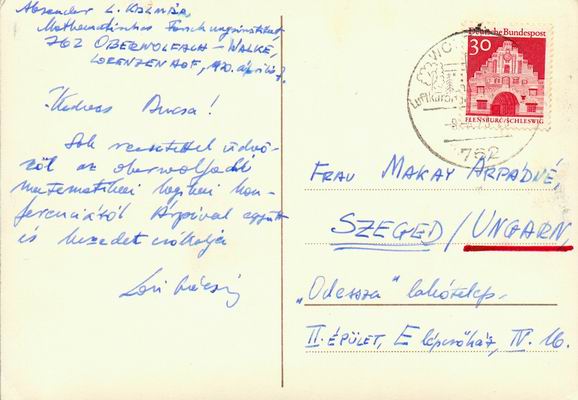 Absender L. KALMÁR,
Mathematisches Forschungsinstitut,
762 OBERWOLFACH-WALKE,
LORENZENHOF, 1970. április 7.
Kedves Ducsa!
Sok szeretettel üdvö-
zöl az oberwolfachi
matematikai logikai kon-
ferenciáról Árpival együtt
és kezedet csókolja
Laci bácsi
Deutsche Bundespost
30
FLENSBURG/SCHLESWIG
762
FRAU MAKAY ÁRPÁDNÉ,
SZEGED/UNGARN,
„Odessza" lakótelep,
II. ÉPÜLET, E lépcsőház, IV. 16.